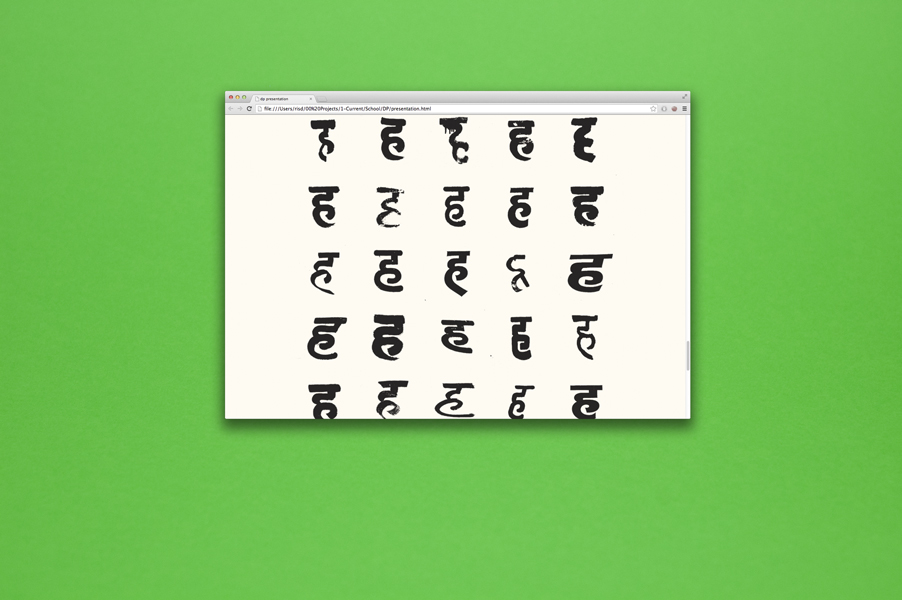 dp presentation
file:///Users/risd/00%20Projects/1-Current/School/DP/presentation.html
ह ह ह ह ह
ह ह ह ह ह
ह ह ह ह ह
ह ह ह ह ह
ह ह ह ह ह